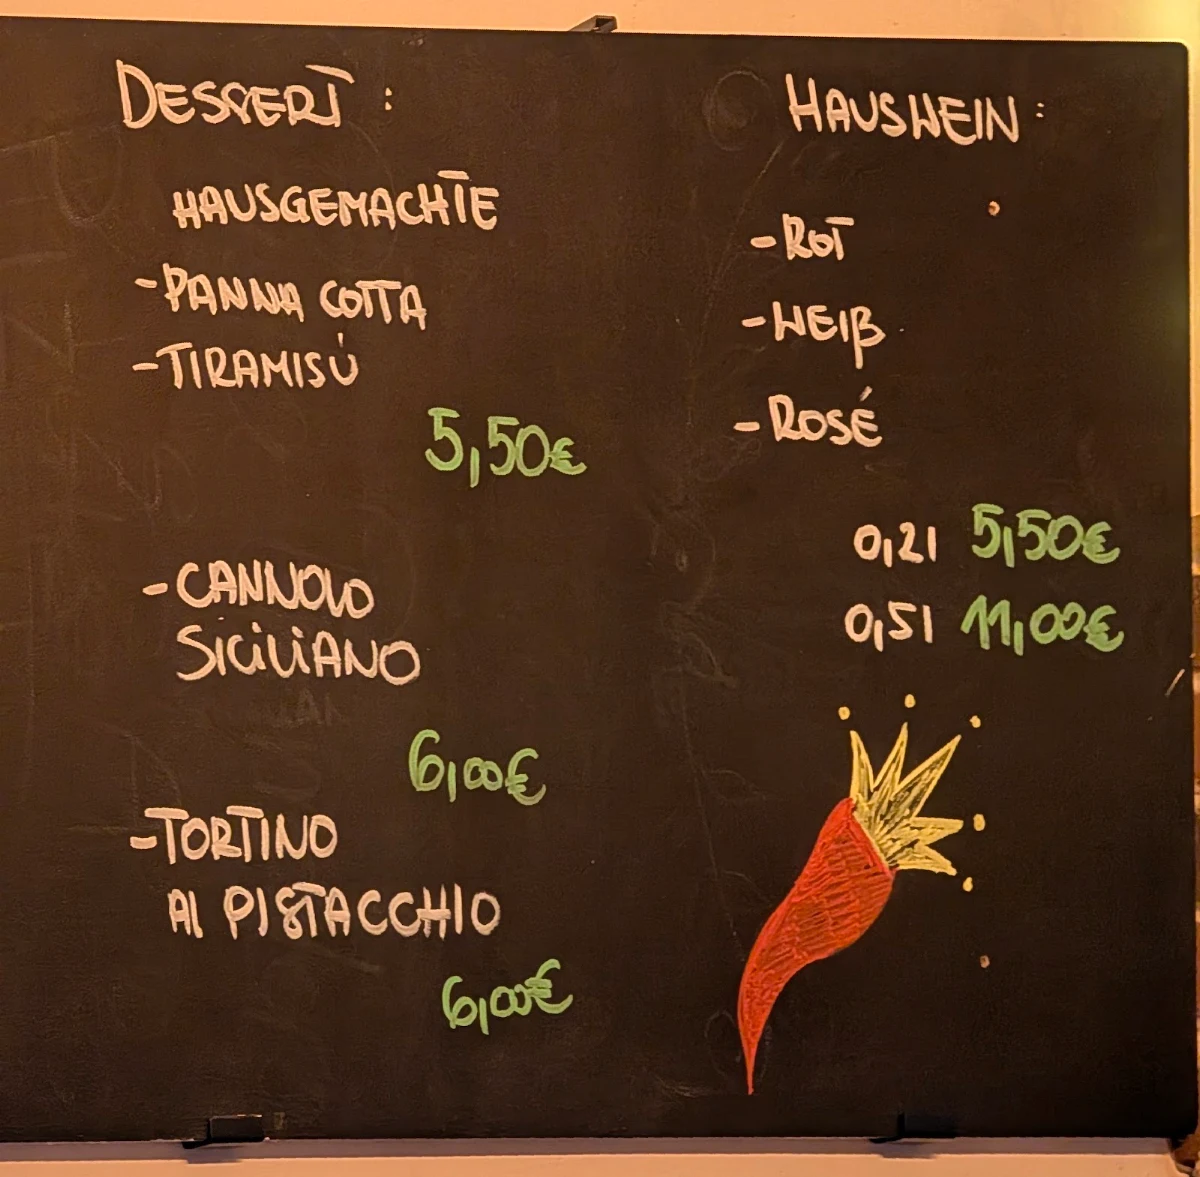 DESSERT :
HAUSGEMACHTE
-PANNA COTTA
-TIRAMISÙ
5,50€
-CANNOLO
SICILIANO
6,00€
-TORTINO
Al PISTACCHIO
6,00€
HAUSWEIN :
-ROT
-WEIß
-ROSÉ
0,2l 5,50€
0,5l 11,00€